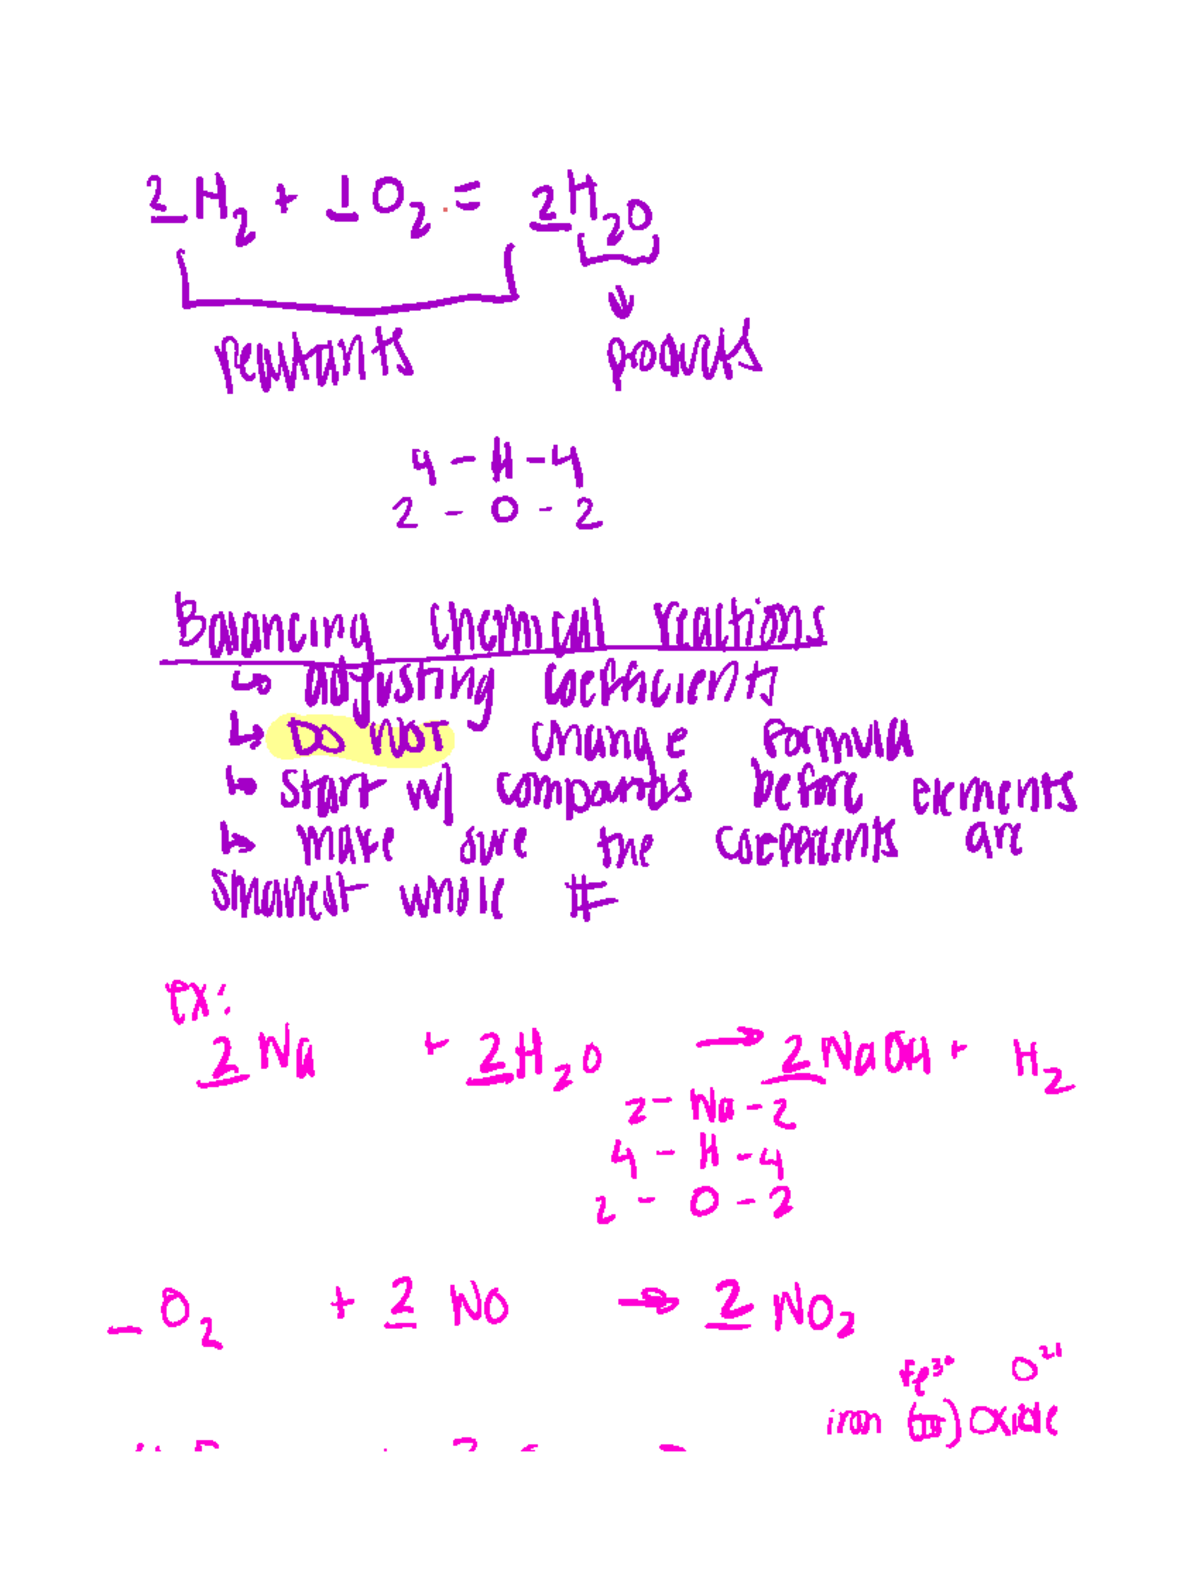 2 H2 + 1 O2 = 2 H2O
reactants products
4 - H - 4
2 - O - 2
Balancing chemical reactions
↳ adjusting coefficients
↳ DO NOT change formula
↳ start w/ compounds before elements
↳ make sure the coefficients are
smallest whole #
ex:
2 Na + 2 H2O → 2 NaOH + H2
2 - Na - 2
4 - H - 4
2 - O - 2
_ O2 + 2 NO → 2 NO2
Fe3+ O
iron (III) Oxide